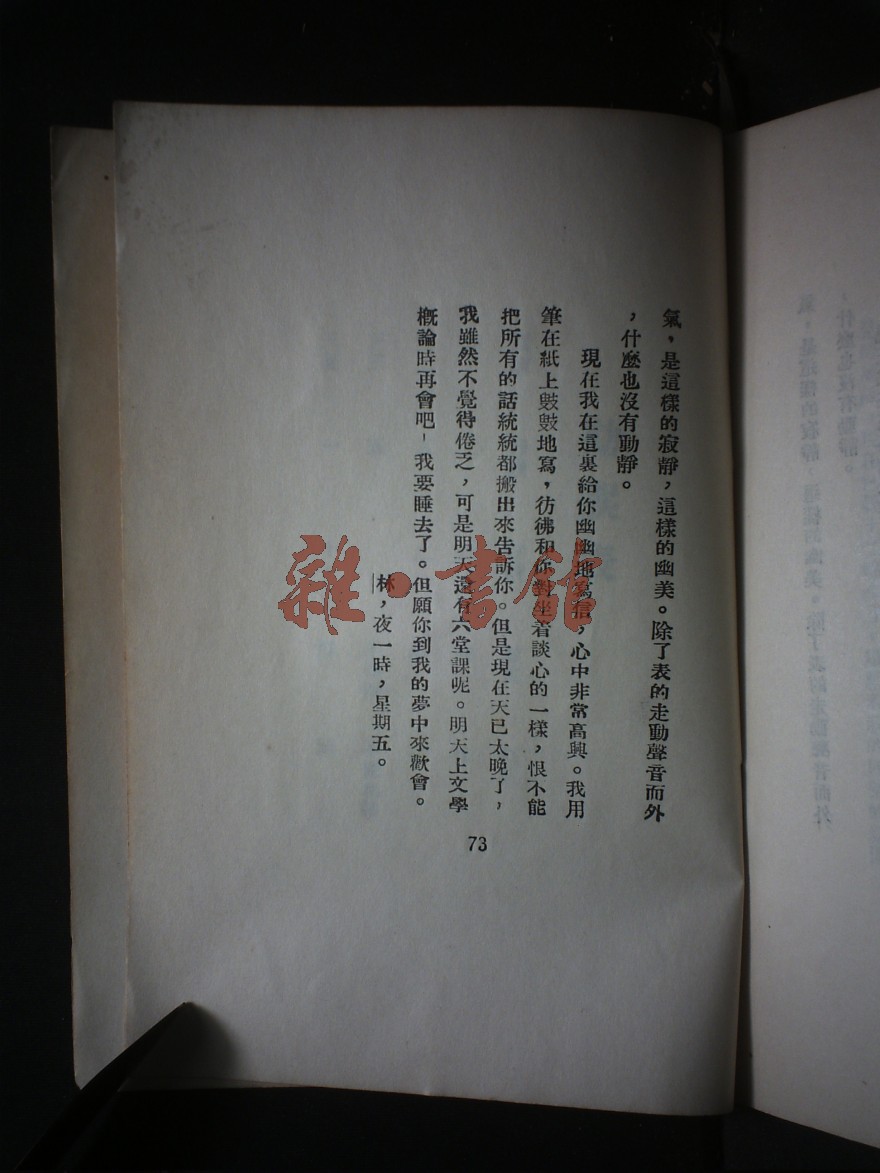 氣，是這樣的寂靜，這樣的幽美。除了表的走動聲音而外
，什麼也沒有動靜。
現在我在這裏給你幽幽地寫信，心中非常高興。我用
筆在紙上數數地寫，彷彿和你對坐着談心的一樣，恨不能
把所有的話統統都搬出來告訴你。但是現在天已太晚了，
我雖然不覺得倦乏，可是明天還有六堂課呢。明天上文學
概論時再會吧！我要睡去了。但願你到我的夢中來歡會。
林，夜一時，星期五。
73
雜·書館